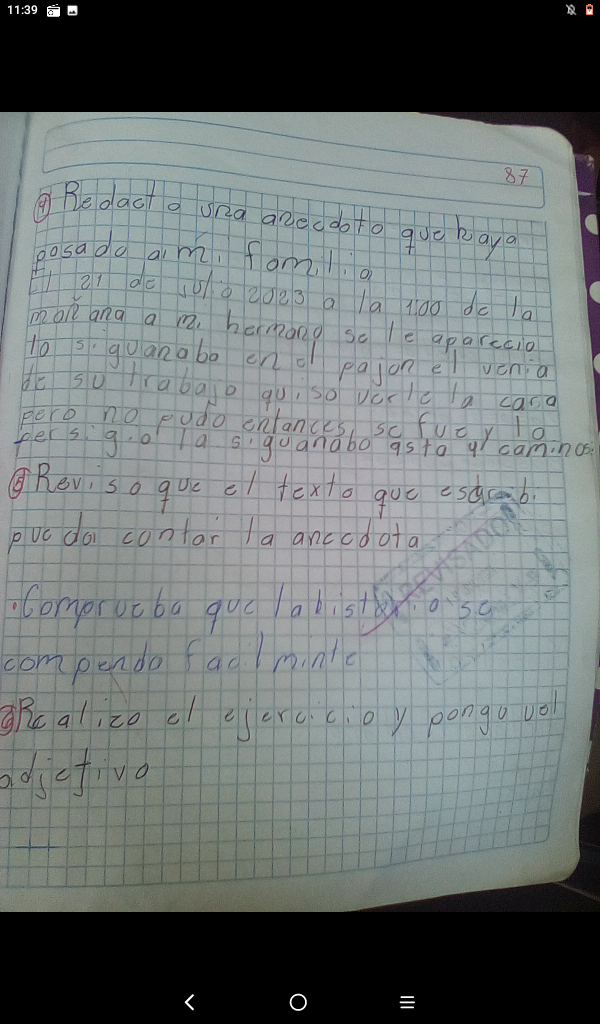 11:39
87
④ Redacto una anecdota que haya
pasado a mi familia
El 21 de julio 2023 a la 1:00 de la
mañana a mi hermano se le aparecio
la siguanaba en el pajon el venia
de su trabajo quiso verle la cara
pero no pudo entances se fue y lo
persigio la siguanabo asta 4 caminos
⑤ Reviso que el texto que escrib.
pueda contar la anecdota
REVISADO
• Comprueba que la historia se
compenda facilminte
Realizo el ejercicio y pongo vel
adjetivo